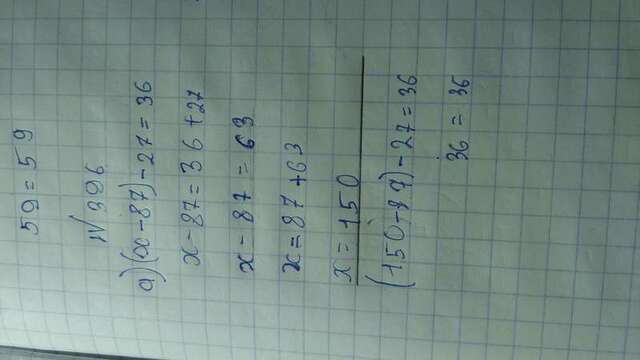 59 = 59
№ 396
а) (x - 87) - 27 = 36
x - 87 = 36 + 27
x - 87 = 63
x = 87 + 63
x = 150
(150 - 87) - 27 = 36
36 = 36